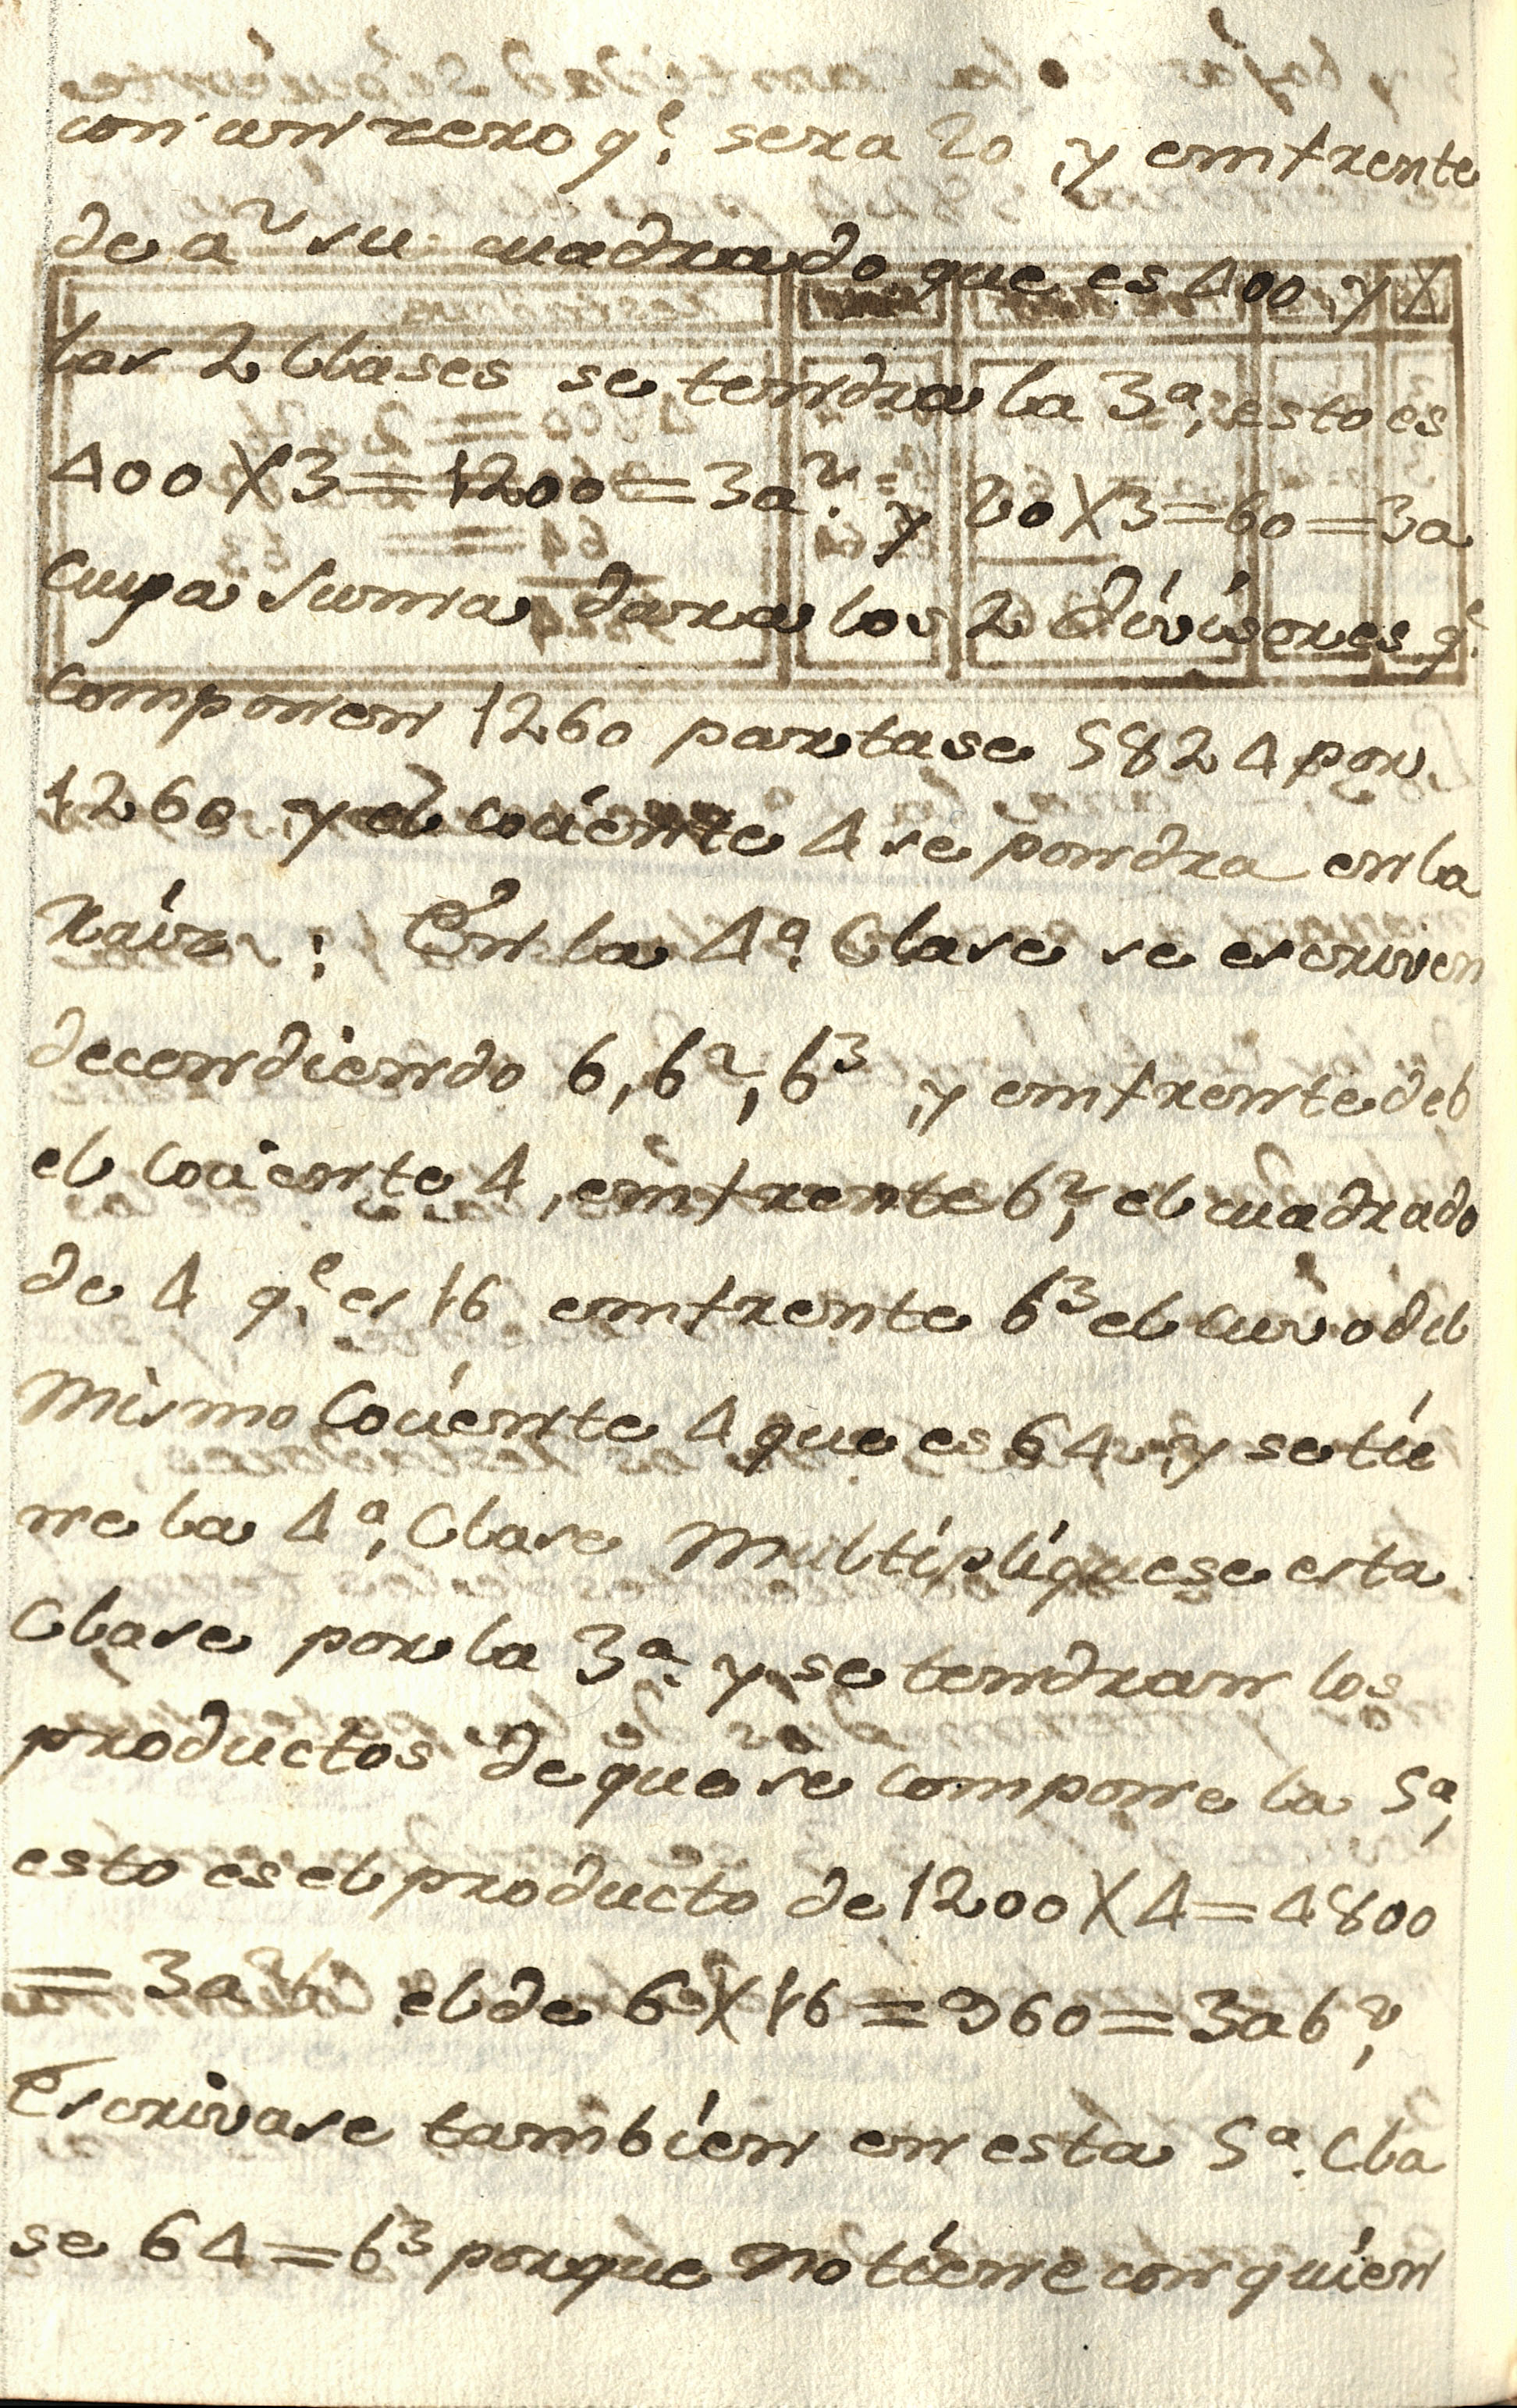 con un zero q.e sera 20, y emfrente
de a² su cuadrado que es 400, y X
las 2 Clases se tendra la 3.a, esto es
400 X 3 = 1200 = 3a². y 20 X 3 = 60 = 3a
Cuya suma dara los 2 divisores q.e
componen 1260 partase 5824 por
1260 y el cociente 4 se pondra en la
Raiz: En la 4.a Clase se escriven
decendiendo b, b², b³, y emfrente de b
el cociente 4, emfrente b², el cuadrado
de 4 q.e es 16 emfrente b³ el cuvo del
Mismo Cociente 4 que es 64, y se tie
ne la 4.a, Clase Multipliquese esta
Clase por la 3.a y se tendran los
productos de que se compone la 5.a,
esto es el producto de 1200 X 4 = 4800
= 3a²b el de 60 X 16 = 960 = 3ab²,
Escrivase tambien en esta 5.a Cla
se 64 = b³ porque no tiene con quien